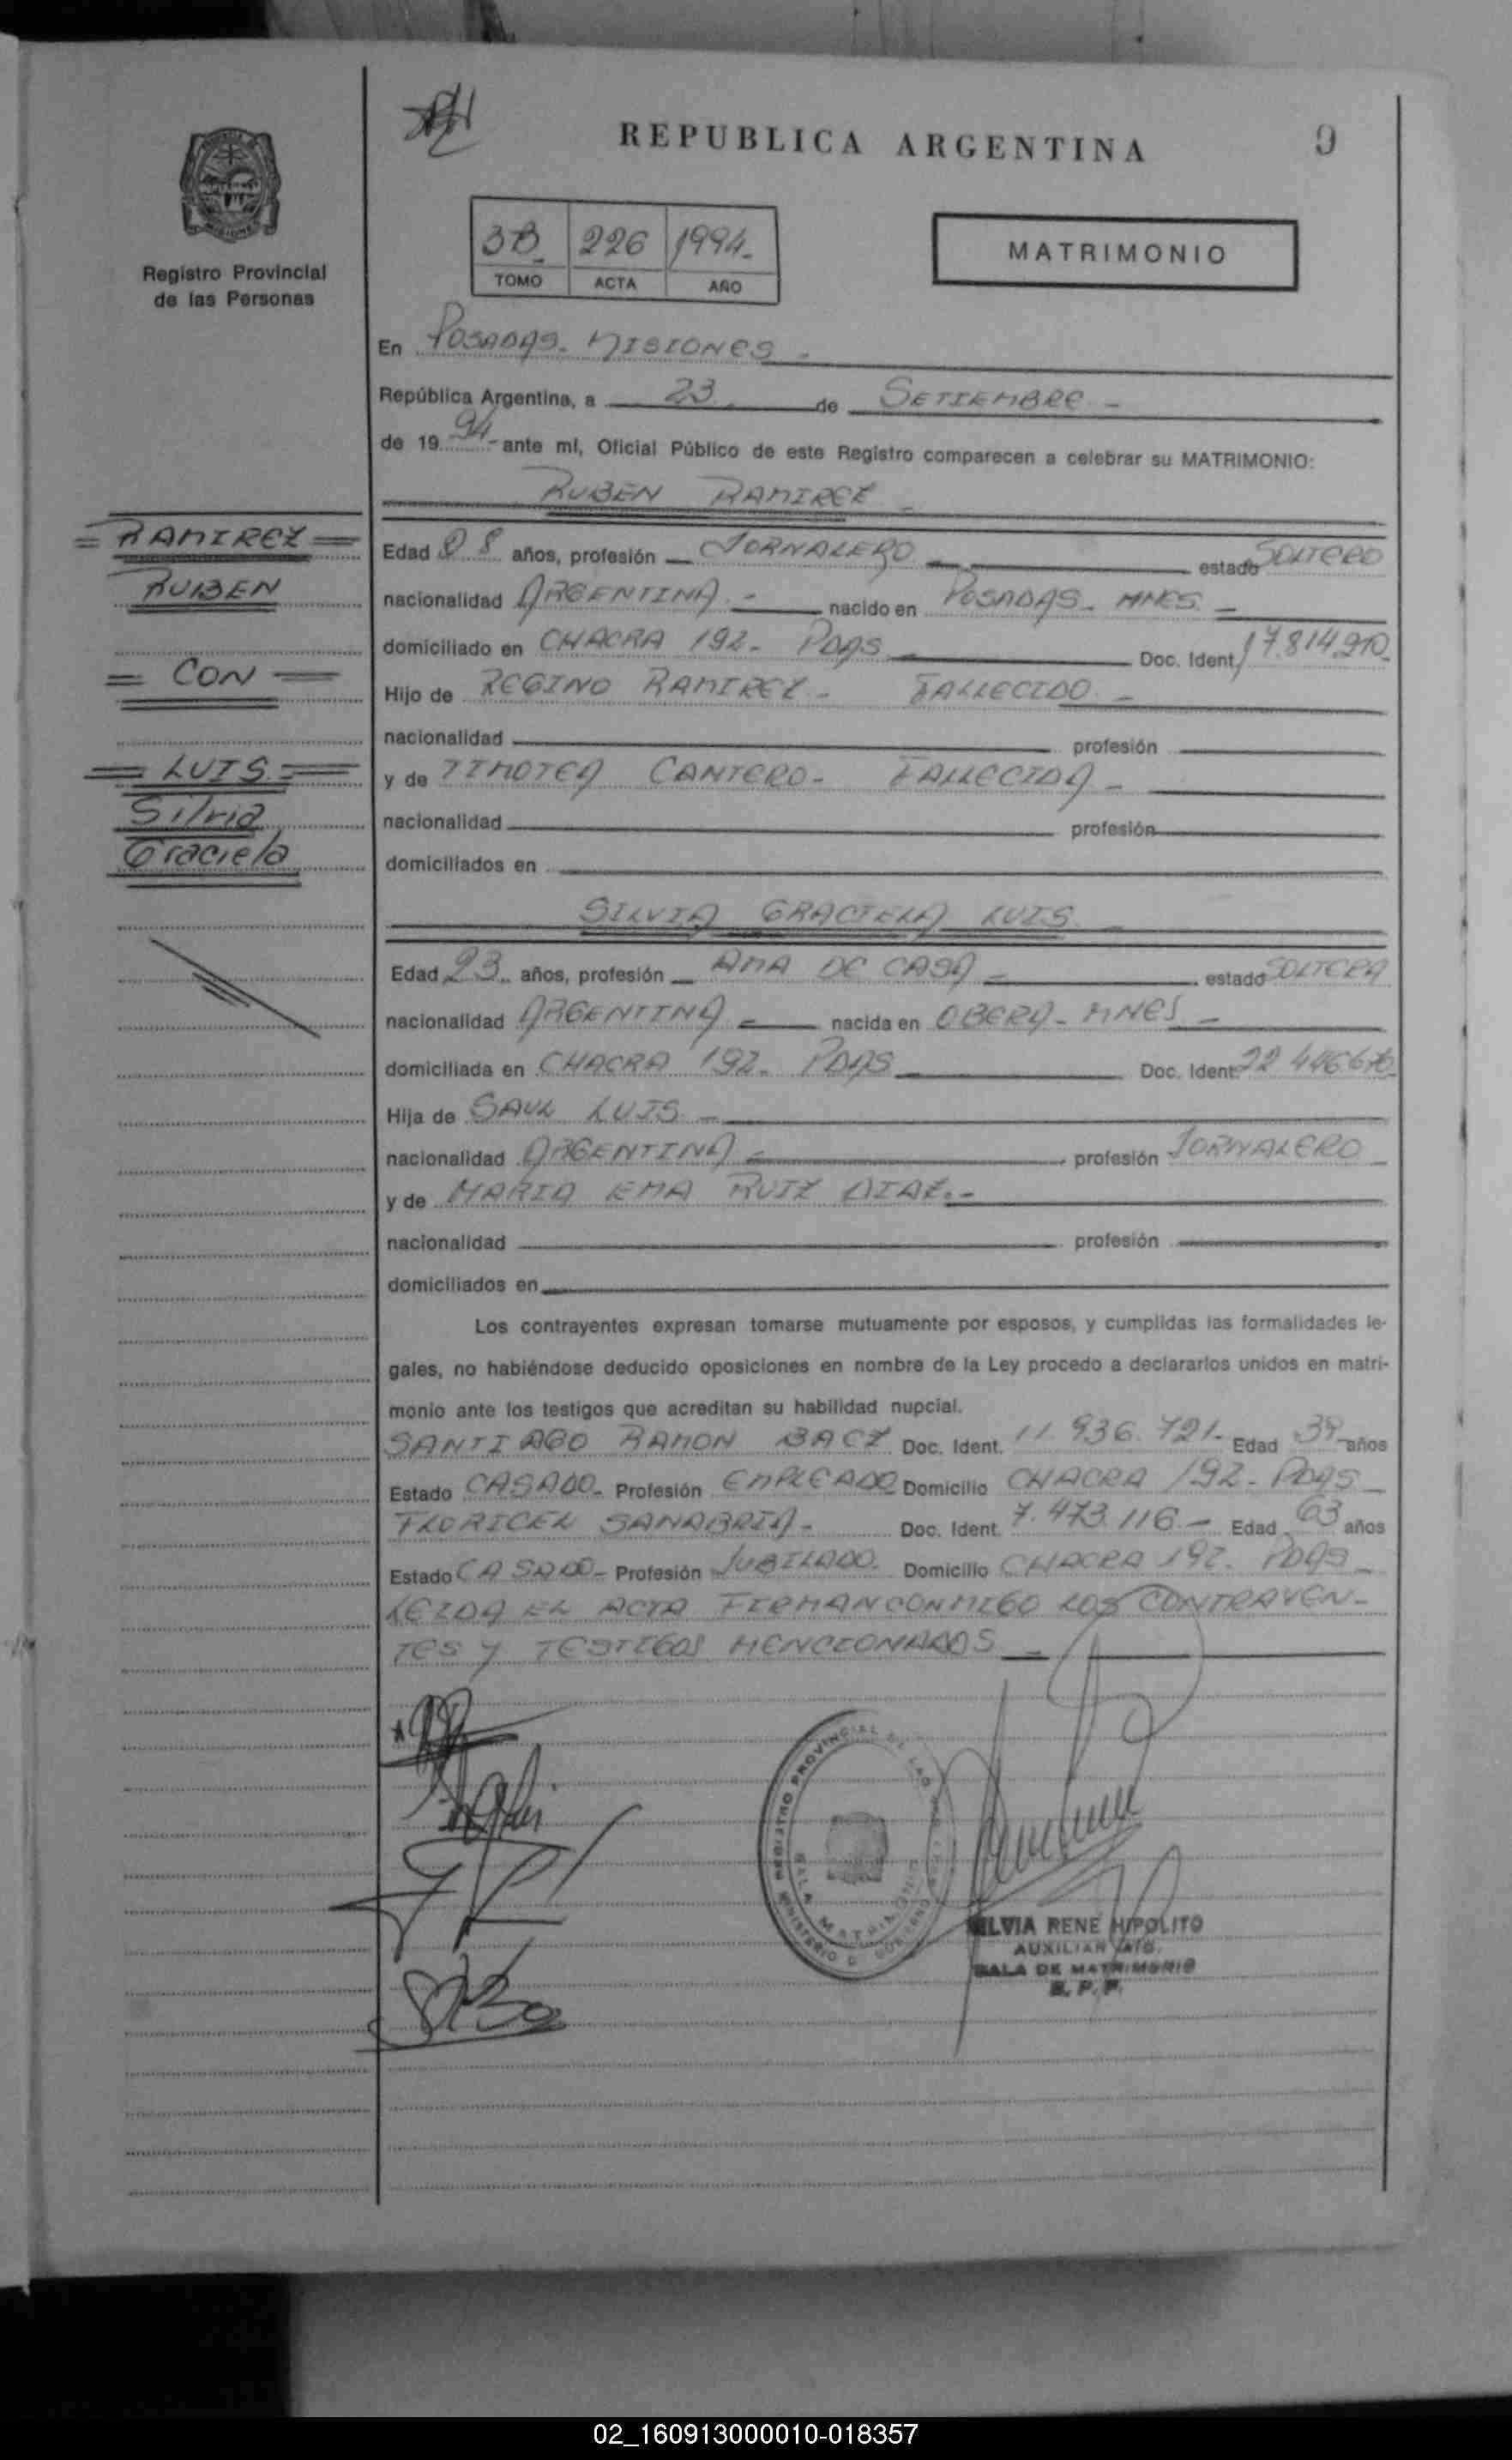 REPUBLICA ARGENTINA
9
Registro Provincial
de las Personas
3B 226 1994.
TOMO ACTA AÑO
MATRIMONIO
En POSADAS - MISIONES -
República Argentina, a 23 de SETIEMBRE -
de 19 94 - ante mí, Oficial Público de este Registro comparecen a celebrar su MATRIMONIO:
RUBEN RAMIREZ
= RAMIREZ =
RUBEN
= CON =
= LUIS =
Silvia
Graciela
Edad 28 años, profesión JORNALERO estado SOLTERO
nacionalidad ARGENTINA - nacido en POSADAS - MNES. -
domiciliado en CHACRA 192 - PDAS Doc. Ident. 17.814.910
Hijo de REGINO RAMIREZ - FALLECIDO -
nacionalidad profesión
y de TIMOTEA CANTERO - FALLECIDA -
nacionalidad profesión
domiciliados en
SILVIA GRACIELA LUIS
Edad 23 años, profesión AMA DE CASA - estado SOLTERA
nacionalidad ARGENTINA - nacida en OBERA - MNES -
domiciliada en CHACRA 192 - PDAS Doc. Ident. 22 446.670
Hija de SAUL LUIS -
nacionalidad ARGENTINA - profesión JORNALERO
y de MARIA EMA RUIZ DIAZ.-
nacionalidad profesión
domiciliados en
Los contrayentes expresan tomarse mutuamente por esposos, y cumplidas las formalidades le-
gales, no habiéndose deducido oposiciones en nombre de la Ley procedo a declararlos unidos en matri-
monio ante los testigos que acreditan su habilidad nupcial.
SANTIAGO RAMON BAEZ Doc. Ident. 11.936.721- Edad 39 años
Estado CASADO - Profesión EMPLEADO Domicilio CHACRA 192 - PDAS
FLORICEL SANABRIA - Doc. Ident. 7.473.116 - Edad 63 años
Estado CASADO - Profesión JUBILADO. Domicilio CHACRA 192 - PDAS -
LEIDA EL ACTA FIRMAN CONMIGO LOS CONTRAYEN-
TES Y TESTIGOS MENCIONADOS -
REGISTRO PROVINCIAL DE LAS
SALA MATRIMONIO
MINISTERIO D GOBIERNO
SILVIA RENE HIPOLITO
AUXILIAR
SALA DE MATRIMONIO
R. P. P.
02_160913000010-018357